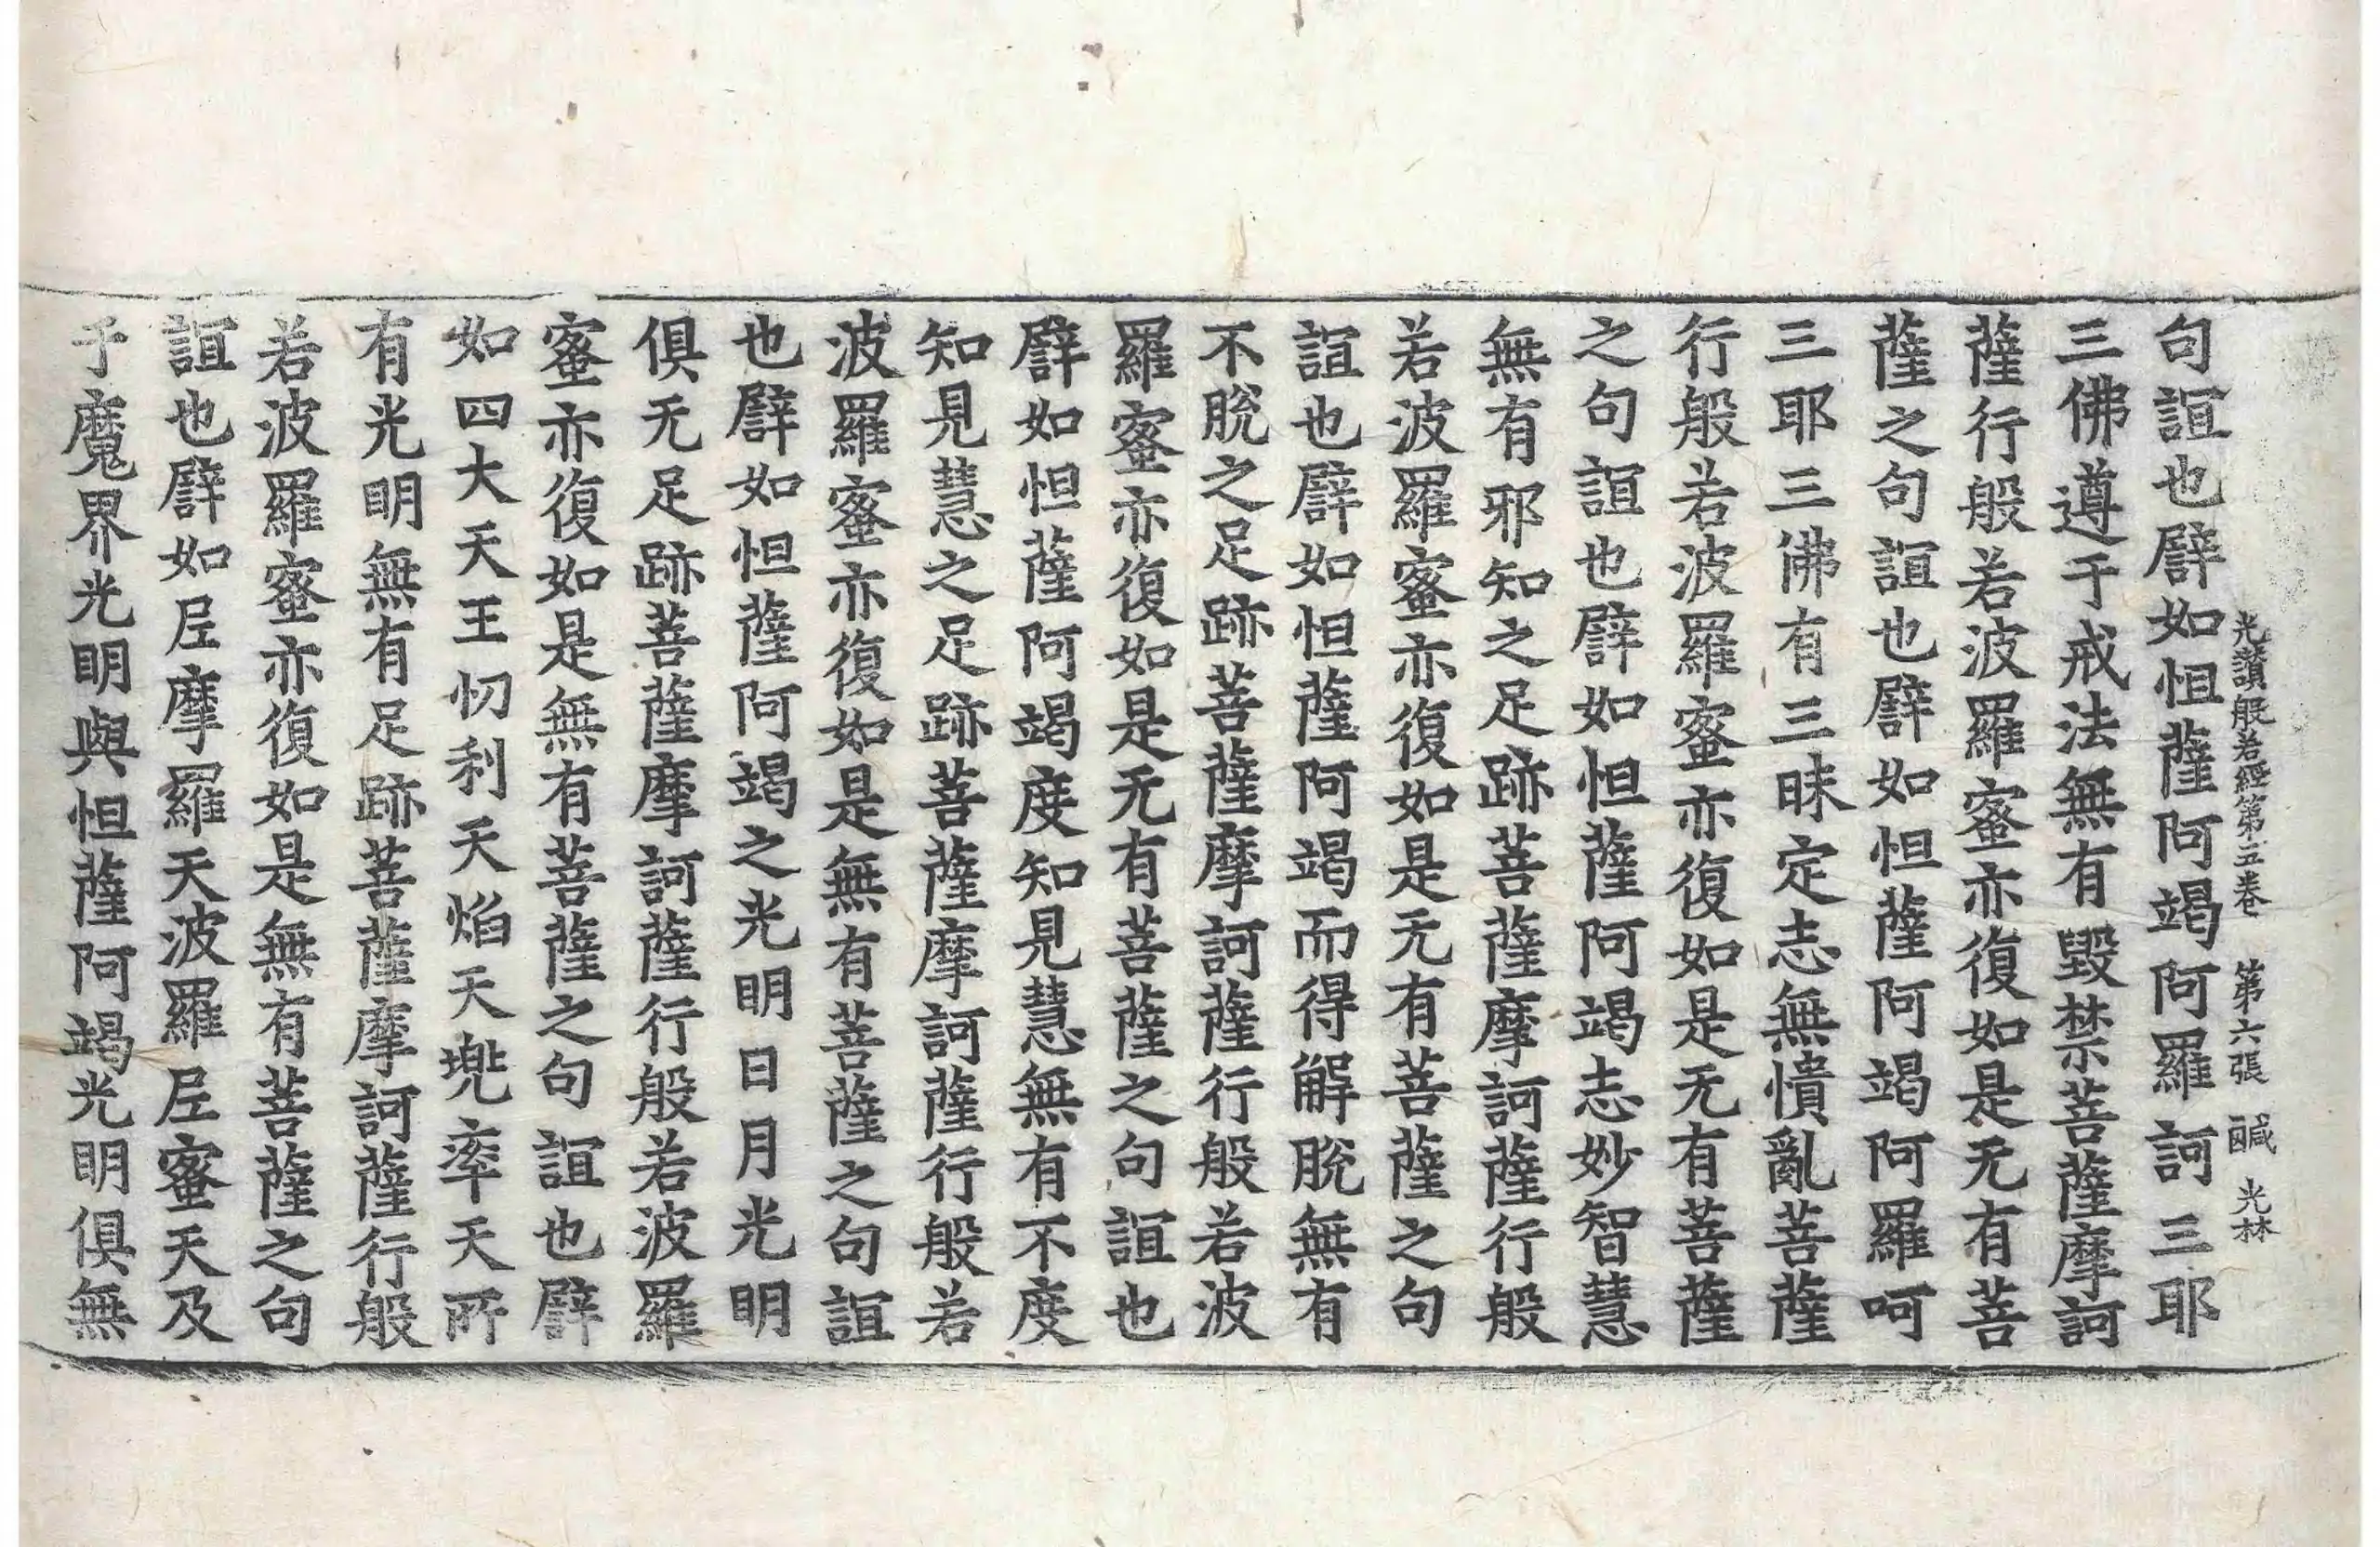 光讚般若經第五卷 第六張 醎 光林
句誼也譬如怛薩阿竭阿羅訶三耶
三佛遵于戒法無有毀禁菩薩摩訶
薩行般若波羅蜜亦復如是无有菩
薩之句誼也譬如怛薩阿竭阿羅呵
三耶三佛有三昧定志無憒亂菩薩
行般若波羅蜜亦復如是无有菩薩
之句誼也譬如怛薩阿竭志妙智慧
無有邪知之足跡菩薩摩訶薩行般
若波羅蜜亦復如是无有菩薩之句
誼也譬如怛薩阿竭而得解脫無有
不脫之足跡菩薩摩訶薩行般若波
羅蜜亦復如是无有菩薩之句誼也
譬如怛薩阿竭度知見慧無有不度
知見慧之足跡菩薩摩訶薩行般若
波羅蜜亦復如是無有菩薩之句誼
也譬如怛薩阿竭之光明日月光明
俱无足跡菩薩摩訶薩行般若波羅
蜜亦復如是無有菩薩之句誼也譬
如四大天王忉利天焰天兠率天所
有光明無有足跡菩薩摩訶薩行般
若波羅蜜亦復如是無有菩薩之句
誼也譬如尼摩羅天波羅尼蜜天及
于魔界光明與怛薩阿竭光明俱無